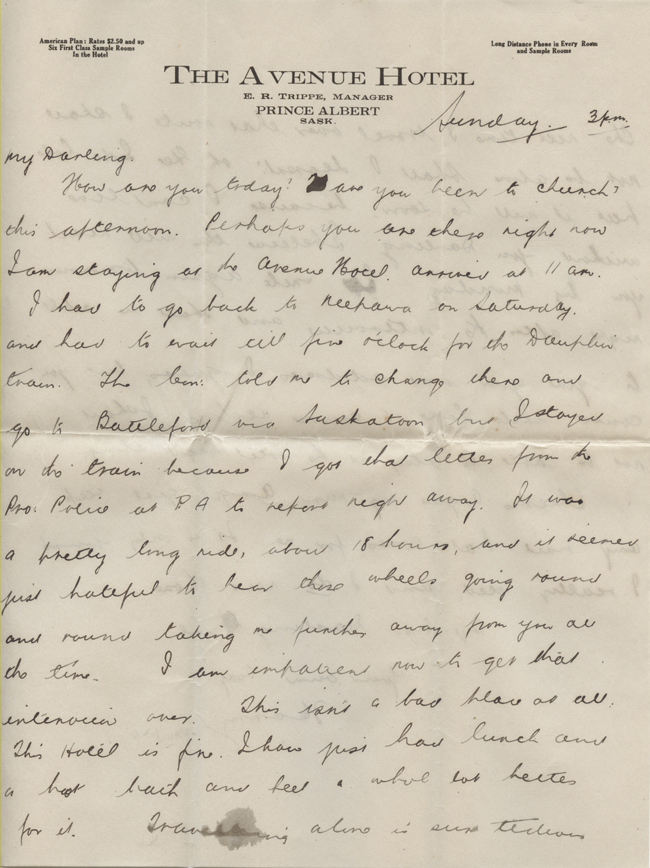 American Plan: Rates $2.50 and up
Six First Class Sample Rooms
In the Hotel
Long Distance Phone in Every Room
and Sample Rooms
THE AVENUE HOTEL
E. R. TRIPPE, MANAGER
PRINCE ALBERT
SASK.
Sunday. 3 pm.
My Darling.
How are you today? Have you been to church?
this afternoon. Perhaps you are there right now
I am staying at the Avenue Hotel. arrived at 11 am.
I had to go back to Neepawa on Saturday.
and had to wait till five o'clock for the Dauphin
train. The told me to change there and
go to Battleford via Saskatoon but I stayed
on the train because I got that letter from the
Pro: Police at P A to report right away. It was
a pretty long ride, about 18 hours, and it seemed
just hateful to hear those wheels going round
and round taking me further away from you all
the time. I am impatient now to get that
interview over. This isn't a bad place at all.
This Hotel is fine. I have just had lunch and
a hot bath and feel a whole lot better
for it. Travelling alone is sure tedious